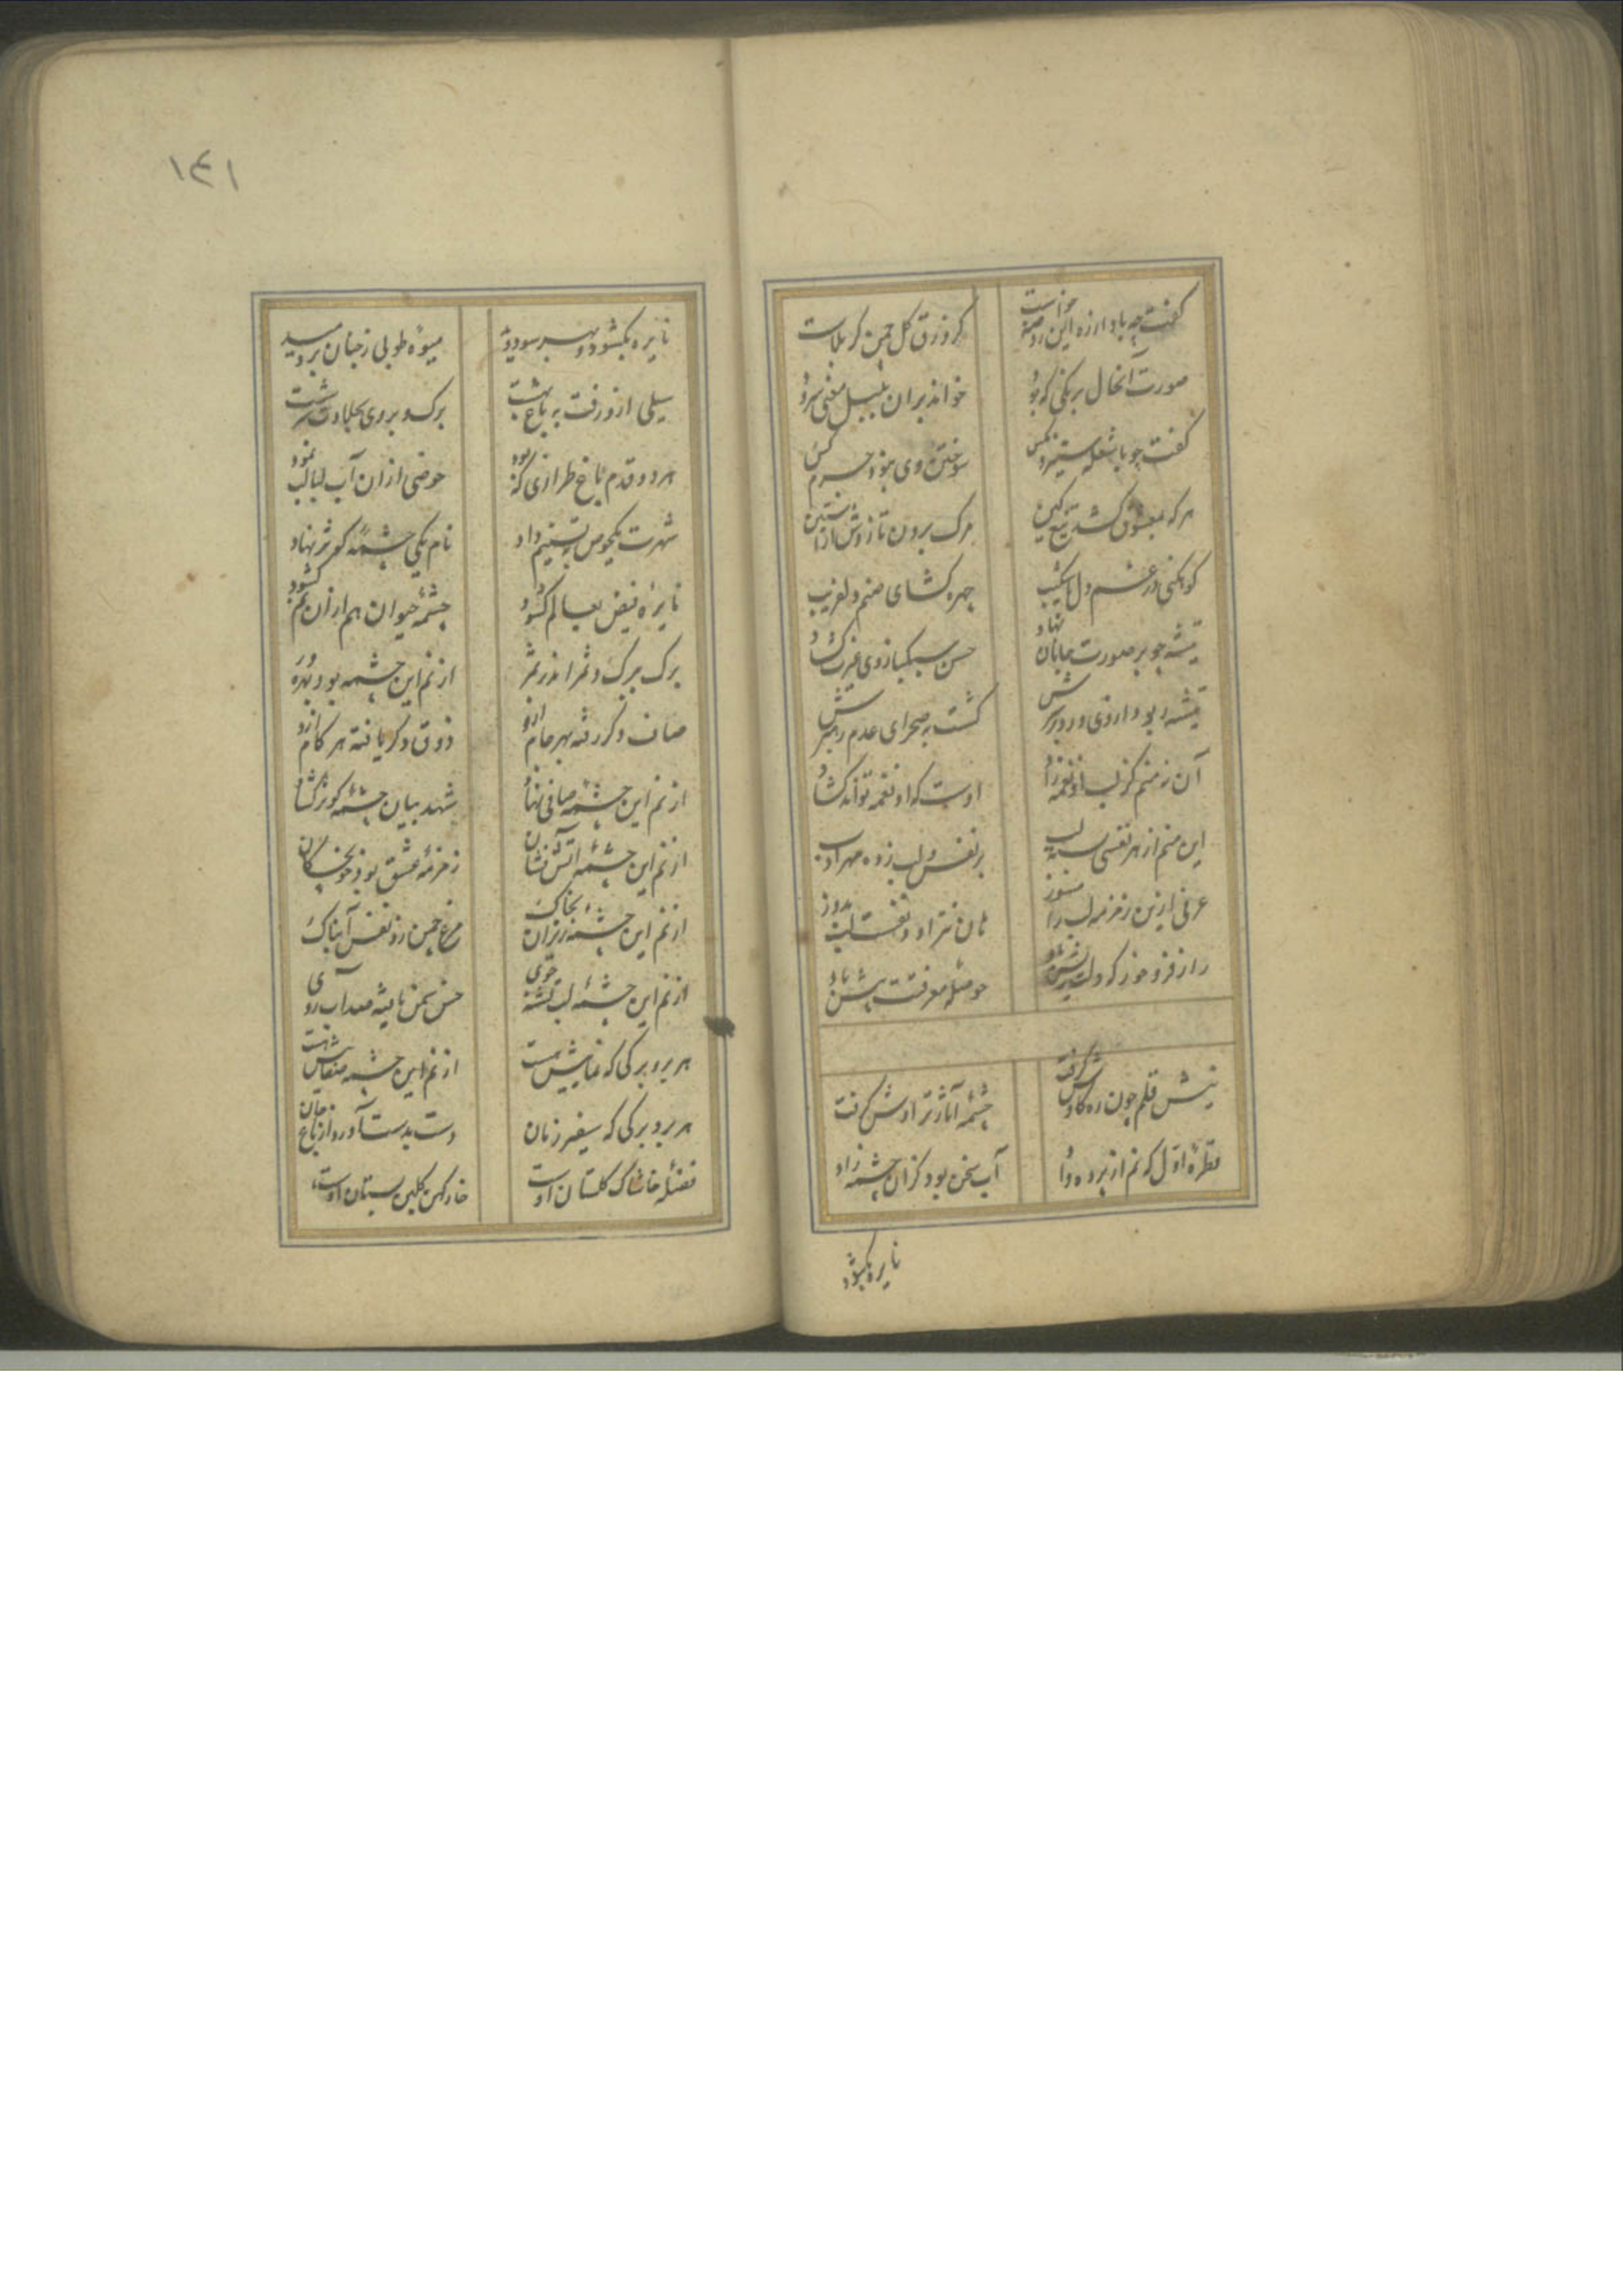 گفت چه باد ارزه این روضه خواست
کز ورق گل چمن کربلاست
صورت آنحال برنگی که بود
خواند بران بلبل مغنی سرود
گفت چو با شعله ستیزد مگس
سوختن وی نبود جرم کس
هر که بمعشوق کشد تیغ کین
مرک برون تازدش از آستین
کوهکنی در غم دل ناشکیب
چهره کشای صنم دلفریب
تیشه چو بر صورت جانان نهاد
حسن سبک بازوی غیرت کشاد
تیشه ربود از وی و زد بر سرش
گشت بصحرای عدم رهبرش
آن نه منم کز لب او نغمه زاد
اوست که او نغمه تواند کشاد
این منم از هر نفسی بسته لب
بر نفس و لب زده مهر ادب
عرفی ازین زمزمه لب را بسوز
هان نتراود نفست لب بدوز
راز فرو خور که دلت ریش باد
حوصله معرفتت بیش باد
نیش قلم چون ره کاوش گرفت
چشمه آثار تراوش گرفت
قطره اول که نم از پرده داد
آب سخن بود کزان چشمه زاد
نایره بکشود
۱۴۱
نایره بکشود و بهر سو دوید
میوه طوبی ز جنان بر دمید
سیلی ازو رفت به باغ بهشت
برک و بر وی بحلاوت سرشت
هر دو قدم باغ طرازی که بود
حوضی ازان آب لبالب نمود
شهرت یکحوض به تسنیم داد
نام یکی چشمه کوثر نهاد
نایره فیض بعالم کشود
چشمه حیوان هم ازان نم کشود
برک ببرک و ثمر اندر ثمر
از نم این چشمه بود بهره‌ور
صاف دگر رفته بهر جام ازو
ذوق دگر یافته هر کام ازو
از نم این چشمه صافی نهاد
شهد بیان چشمه کوثر کشاد
از نم این چشمه آتش نشان
زمزمه عشق بود خونچکان
از نم این چشمه ریزان بخاک
مرغ چمن زد نفس آبناک
از نم این چشمه لب تشنه جوی
هر برو برکی که نمایش بهست
از نم این چشمه
هر بر و برکی که سفیر زمان
دست بدست آورد از باغ جان
فضله خاشاک گلستان اوست
خار کهن گلبن بستان اوست